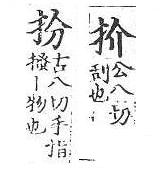 扴
公八切
刮也
扮
古八切手指
撥丨物也